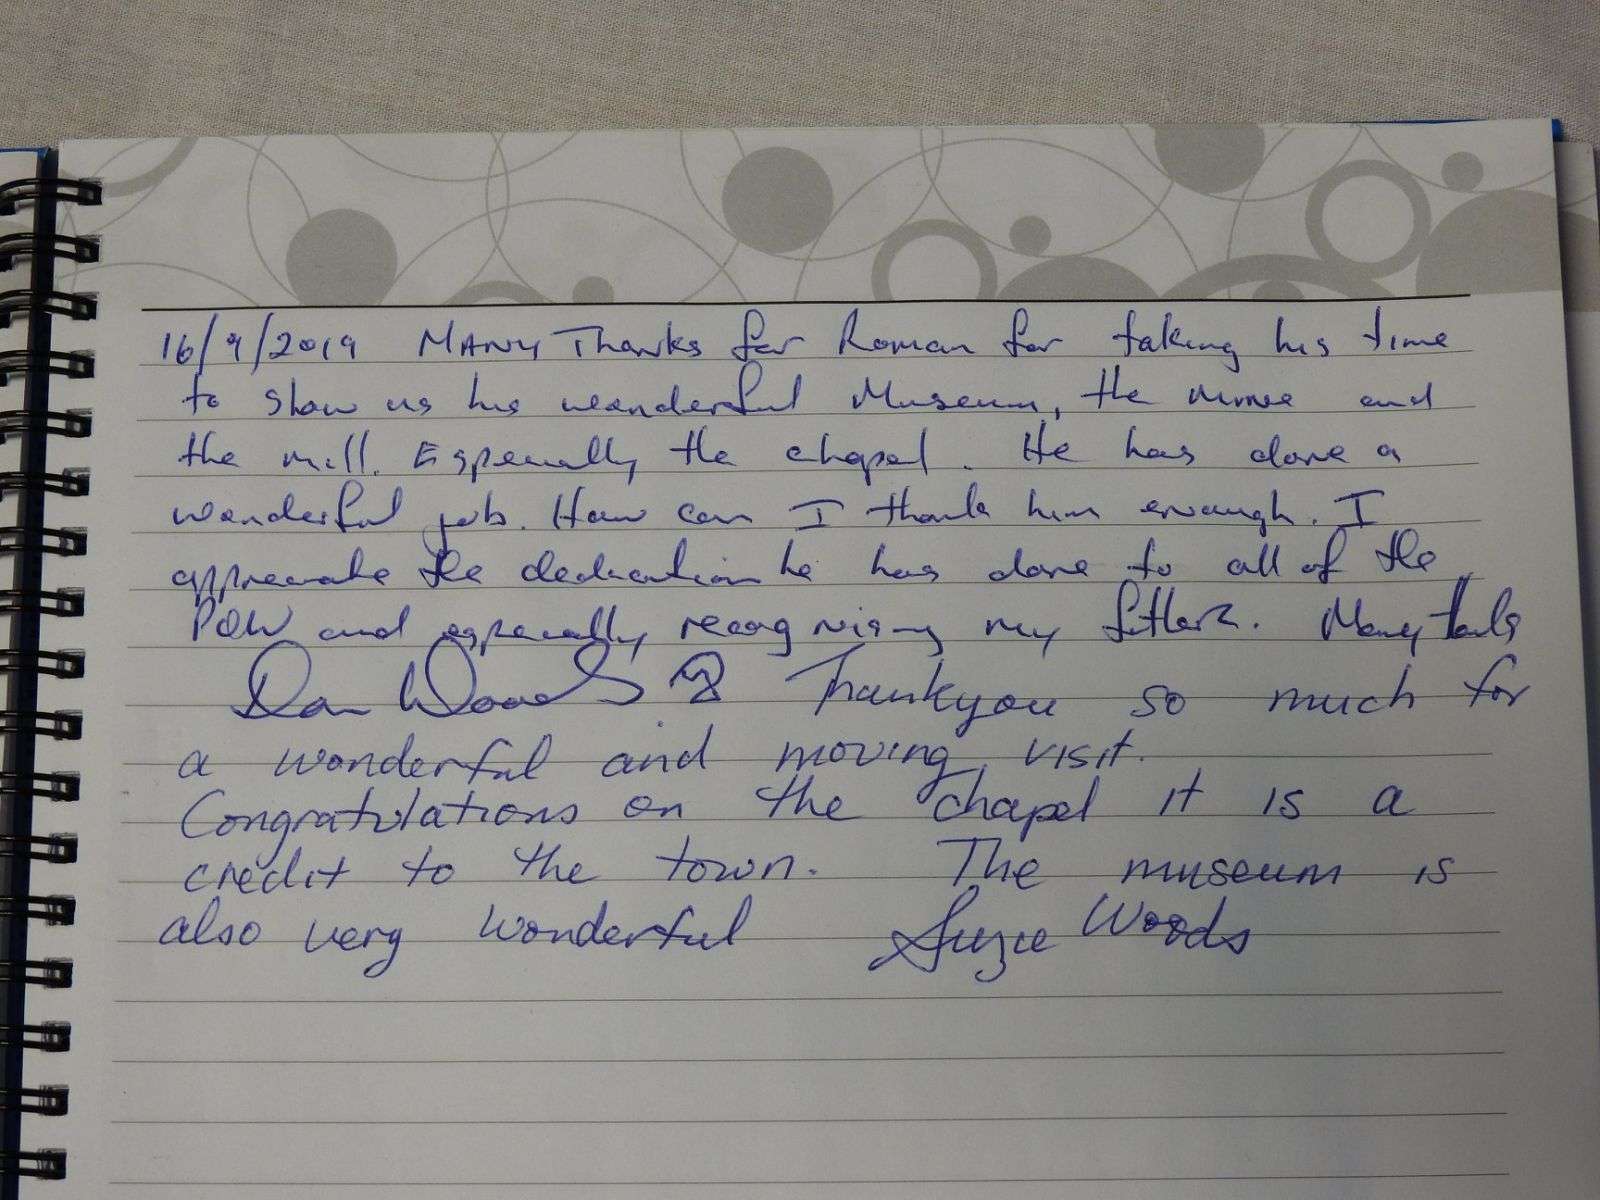 16/9/2019 MANY Thanks for Roman for taking his time
to show us his wonderful Museum, the mine and
the mill. Especially the chapel. He has done a
wonderful job. How can I thank him enough. I
appreciate the dedication he has done to all of the
POW and especially recognising my father. Many thanks
Dan Woods Thankyou so much for
a wonderful and moving visit.
Congratulations on the chapel it is a
credit to the town. The museum is
also very wonderful Suzie Woods